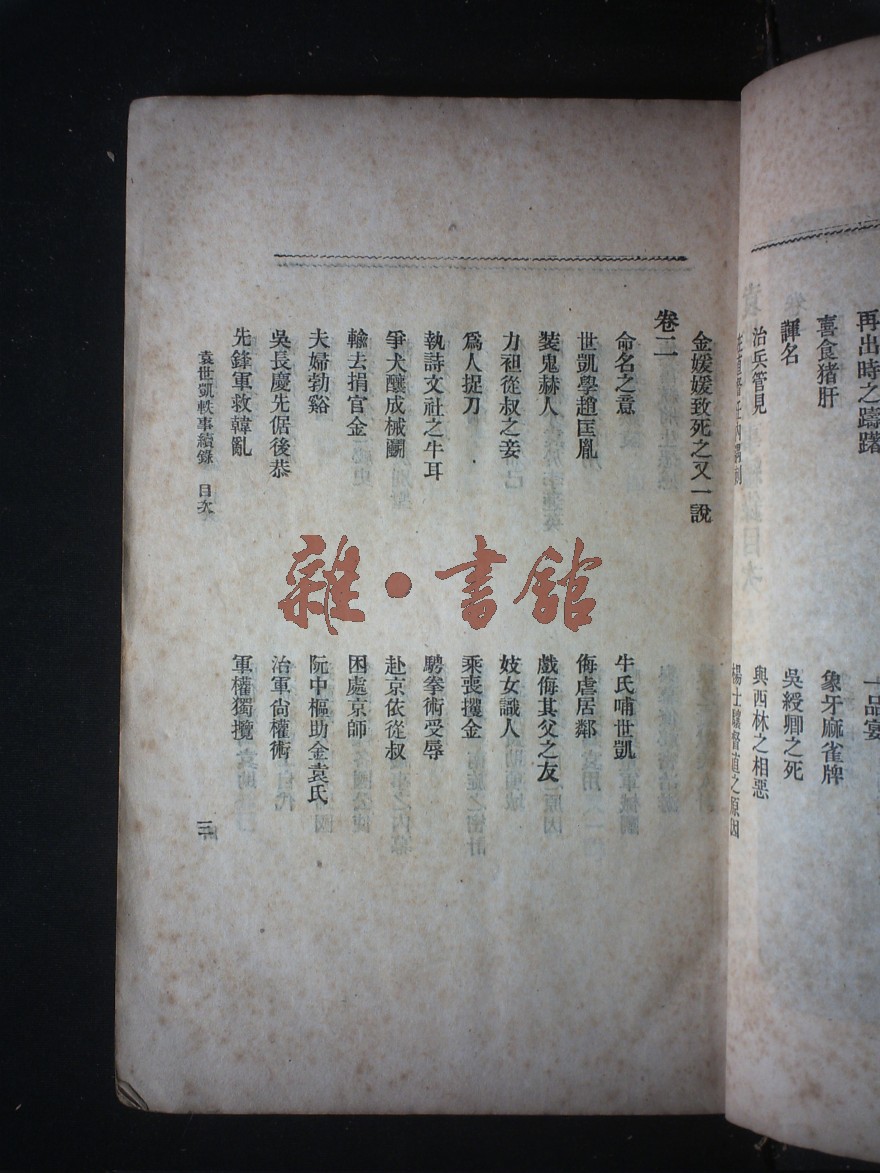 再出時之躊躇
一品宴
喜食猪肝
象牙麻雀牌
諢名
吳綬卿之死
治兵管見
與西林之相惡
楊士驤督直之原因
金媛媛致死之又一說
卷二
命名之意
牛氏哺世凱
世凱學趙匡胤
侮虐居鄰
裝鬼赫人
戲侮其父之友
力袒從叔之妾
妓女識人
爲人捉刀
乘喪攫金
執詩文社之牛耳
騁拳術受辱
爭犬釀成械鬭
赴京依從叔
輸去捐官金
困處京師
夫婦勃谿
阮中樞助金袁氏
吳長慶先倨後恭
治軍尙權術
先鋒軍救韓亂
軍權獨攬
袁世凱軼事續錄 目次
三
雜·書館